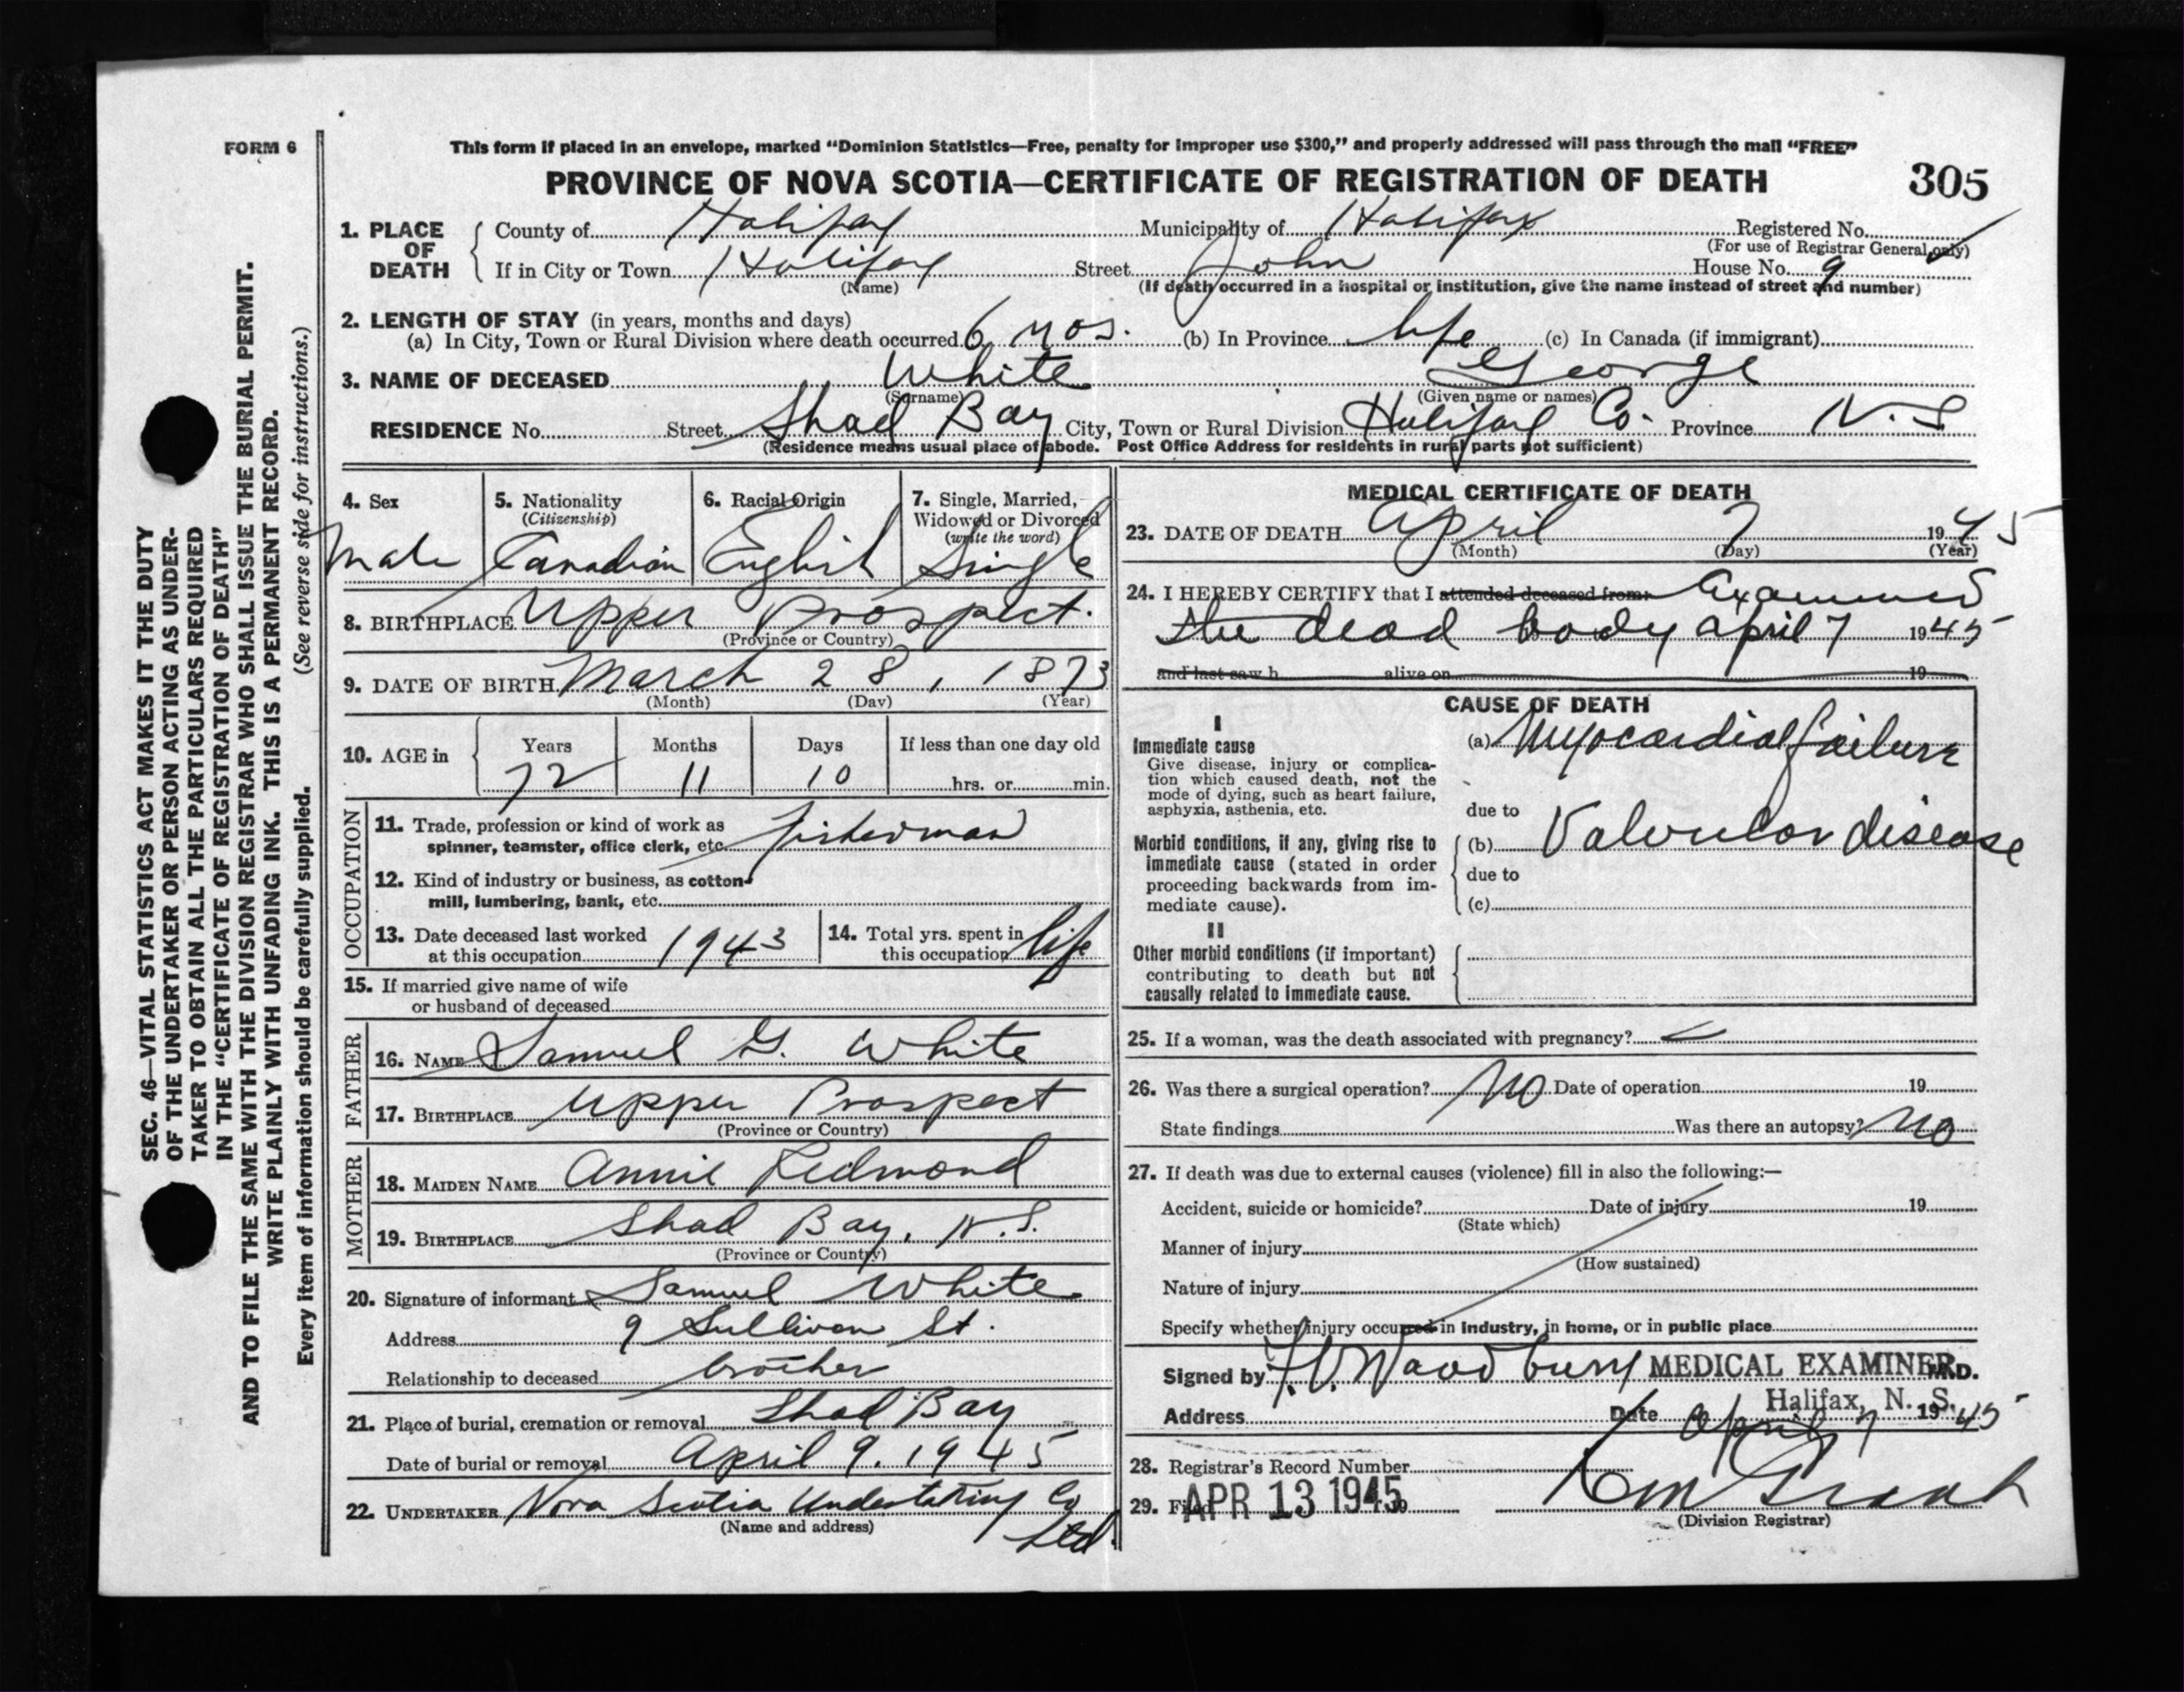 FORM 6
This form if placed in an envelope, marked “Dominion Statistics—Free, penalty for improper use $300,” and properly addressed will pass through the mail “FREE”
PROVINCE OF NOVA SCOTIA—CERTIFICATE OF REGISTRATION OF DEATH 305
1. PLACE OF DEATH
County of Halifax Municipality of Halifax Registered No.
(For use of Registrar General only)
If in City or Town Halifax Street John House No. 9
(Name) (If death occurred in a hospital or institution, give the name instead of street and number)
2. LENGTH OF STAY (in years, months and days)
(a) In City, Town or Rural Division where death occurred 6 mos. (b) In Province life (c) In Canada (if immigrant)
3. NAME OF DECEASED White George
(Surname) (Given name or names)
RESIDENCE No. Street Shad Bay City, Town or Rural Division Halifax Co. Province N.S
(Residence means usual place of abode. Post Office Address for residents in rural parts not sufficient)
4. Sex 5. Nationality (Citizenship) 6. Racial Origin 7. Single, Married, Widowed or Divorced (write the word)
Male Canadian English Single
8. BIRTHPLACE Upper Prospect.
(Province or Country)
9. DATE OF BIRTH March 28, 1873
(Month) (Day) (Year)
10. AGE in Years Months Days If less than one day old
72 11 10 hrs. or min.
OCCUPATION
11. Trade, profession or kind of work as
spinner, teamster, office clerk, etc. Fisherman
12. Kind of industry or business, as cotton-
mill, lumbering, bank, etc.
13. Date deceased last worked
at this occupation 1943
14. Total yrs. spent in
this occupation life
15. If married give name of wife
or husband of deceased
FATHER
16. NAME Samuel G. White
17. BIRTHPLACE Upper Prospect
(Province or Country)
MOTHER
18. MAIDEN NAME Annie Redmond
19. BIRTHPLACE Shad Bay, N.S.
(Province or Country)
20. Signature of informant Samuel White
Address 9 Sullivan St.
Relationship to deceased brother
21. Place of burial, cremation or removal Shad Bay
Date of burial or removal April 9. 1945
22. UNDERTAKER Nova Scotia Undertaking Co
(Name and address) Ltd.
MEDICAL CERTIFICATE OF DEATH
23. DATE OF DEATH April 7 1945
(Month) (Day) (Year)
24. I HEREBY CERTIFY that I attended deceased from: Examined
the dead body April 7 1945
and last saw h alive on 19
CAUSE OF DEATH
I
Immediate cause
Give disease, injury or complica-
tion which caused death, not the
mode of dying, such as heart failure,
asphyxia, asthenia, etc.
(a) Myocardial failure
due to
Morbid conditions, if any, giving rise to
immediate cause (stated in order
proceeding backwards from im-
mediate cause).
(b) Valvular disease
due to
(c)
II
Other morbid conditions (if important)
contributing to death but not
causally related to immediate cause.
25. If a woman, was the death associated with pregnancy?
26. Was there a surgical operation? No Date of operation 19
State findings Was there an autopsy? No
27. If death was due to external causes (violence) fill in also the following:—
Accident, suicide or homicide? Date of injury 19
(State which)
Manner of injury
(How sustained)
Nature of injury
Specify whether injury occurred in industry, in home, or in public place
Signed by Woodbury MEDICAL EXAMINER M.D.
Halifax, N. S.
Address Date April 7 1945
28. Registrar's Record Number
29. Filed APR 13 1945 19
(Division Registrar)
SEC. 46—VITAL STATISTICS ACT MAKES IT THE DUTY
OF THE UNDERTAKER OR PERSON ACTING AS UNDER-
TAKER TO OBTAIN ALL THE PARTICULARS REQUIRED
IN THE “CERTIFICATE OF REGISTRATION OF DEATH”
AND TO FILE THE SAME WITH THE DIVISION REGISTRAR WHO SHALL ISSUE THE BURIAL PERMIT.
WRITE PLAINLY WITH UNFADING INK. THIS IS A PERMANENT RECORD.
Every item of information should be carefully supplied. (See reverse side for instructions.)